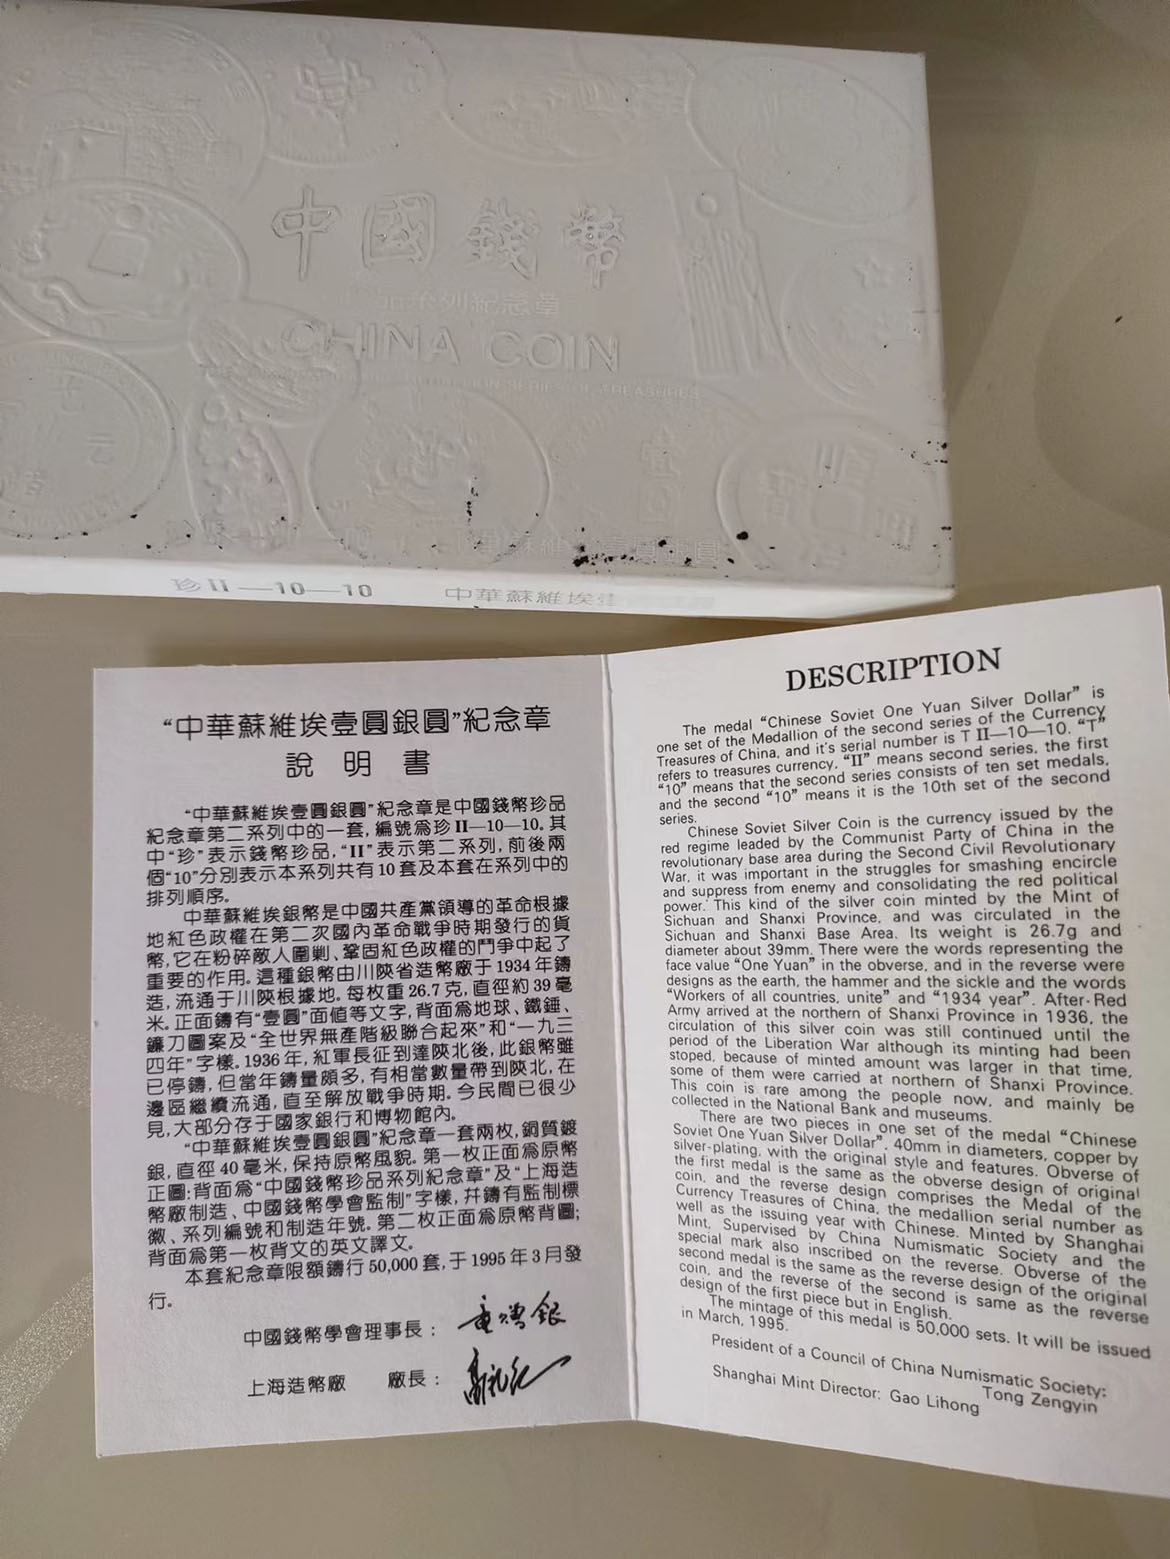 中國錢幣
系列紀念章
CHINA COIN
SERIES OF TREASURES
珍II—10—10 中華蘇維埃壹
“中華蘇維埃壹圓銀圓”紀念章
說 明 書
“中華蘇維埃壹圓銀圓”紀念章是中國錢幣珍品
紀念章第二系列中的一套，編號為珍II—10—10。其
中“珍”表示錢幣珍品，“II”表示第二系列，前後兩
個“10”分別表示本系列共有10套及本套在系列中的
排列順序。
中華蘇維埃銀幣是中國共產黨領導的革命根據
地紅色政權在第二次國內革命戰爭時期發行的貨
幣，它在粉碎敵人圍剿、鞏固紅色政權的鬥爭中起了
重要的作用。這種銀幣由川陝省造幣廠于1934年鑄
造，流通于川陝根據地。每枚重26.7克，直徑約39毫
米。正面鑄有“壹圓”面值等文字，背面為地球、鐵錘、
鐮刀圖案及“全世界無產階級聯合起來”和“一九三
四年”字樣。1936年，紅軍長征到達陝北後，此銀幣雖
已停鑄，但當年鑄量頗多，有相當數量帶到陝北，在
邊區繼續流通，直至解放戰爭時期。今民間已很少
見，大部分存于國家銀行和博物館內。
“中華蘇維埃壹圓銀圓”紀念章一套兩枚，銅質鍍
銀，直徑40毫米，保持原幣風貌。第一枚正面為原幣
正圖；背面為“中國錢幣珍品系列紀念章”及“上海造
幣廠制造、中國錢幣學會監制”字樣，幷鑄有監制標
徽、系列編號和制造年號。第二枚正面為原幣背圖；
背面為第一枚背文的英文譯文。
本套紀念章限額鑄行50,000套，于1995年3月發
行。
中國錢幣學會理事長：
上海造幣廠 廠長：
DESCRIPTION
The medal “Chinese Soviet One Yuan Silver Dollar” is
one set of the Medallion of the second series of the Currency
Treasures of China, and it's serial number is T II—10—10. “T”
refers to treasures currency. “II” means second series, the first
“10” means that the second series consists of ten set medals,
and the second “10” means it is the 10th set of the second
series.
Chinese Soviet Silver Coin is the currency issued by the
red regime leaded by the Communist Party of China in the
revolutionary base area during the Second Civil Revolutionary
War, it was important in the struggles for smashing encircle
and suppress from enemy and consolidating the red political
power. This kind of the silver coin minted by the Mint of
Sichuan and Shanxi Province, and was circulated in the
Sichuan and Shanxi Base Area. Its weight is 26.7g and
diameter about 39mm. There were the words representing the
face value “One Yuan” in the obverse, and in the reverse were
designs as the earth, the hammer and the sickle and the words
“Workers of all countries, unite” and “1934 year”. After Red
Army arrived at the northern of Shanxi Province in 1936, the
circulation of this silver coin was still continued until the
period of the Liberation War although its minting had been
stoped, because of minted amount was larger in that time,
some of them were carried at northern of Shanxi Province.
This coin is rare among the people now, and mainly be
collected in the National Bank and museums.
There are two pieces in one set of the medal “Chinese
Soviet One Yuan Silver Dollar”, 40mm in diameters, copper by
silver-plating, with the original style and features. Obverse of
the first medal is the same as the obverse design of original
coin, and the reverse design comprises the Medal of the
Currency Treasures of China, the medallion serial number as
well as the issuing year with Chinese. Minted by Shanghai
Mint, Supervised by China Numismatic Society and the
special mark also inscribed on the reverse. Obverse of the
second medal is the same as the reverse design of the original
coin, and the reverse of the second is same as the reverse
design of the first piece but in English.
The mintage of this medal is 50,000 sets. It will be issued
in March, 1995.
President of a Council of China Numismatic Society:
Tong Zengyin
Shanghai Mint Director: Gao Lihong